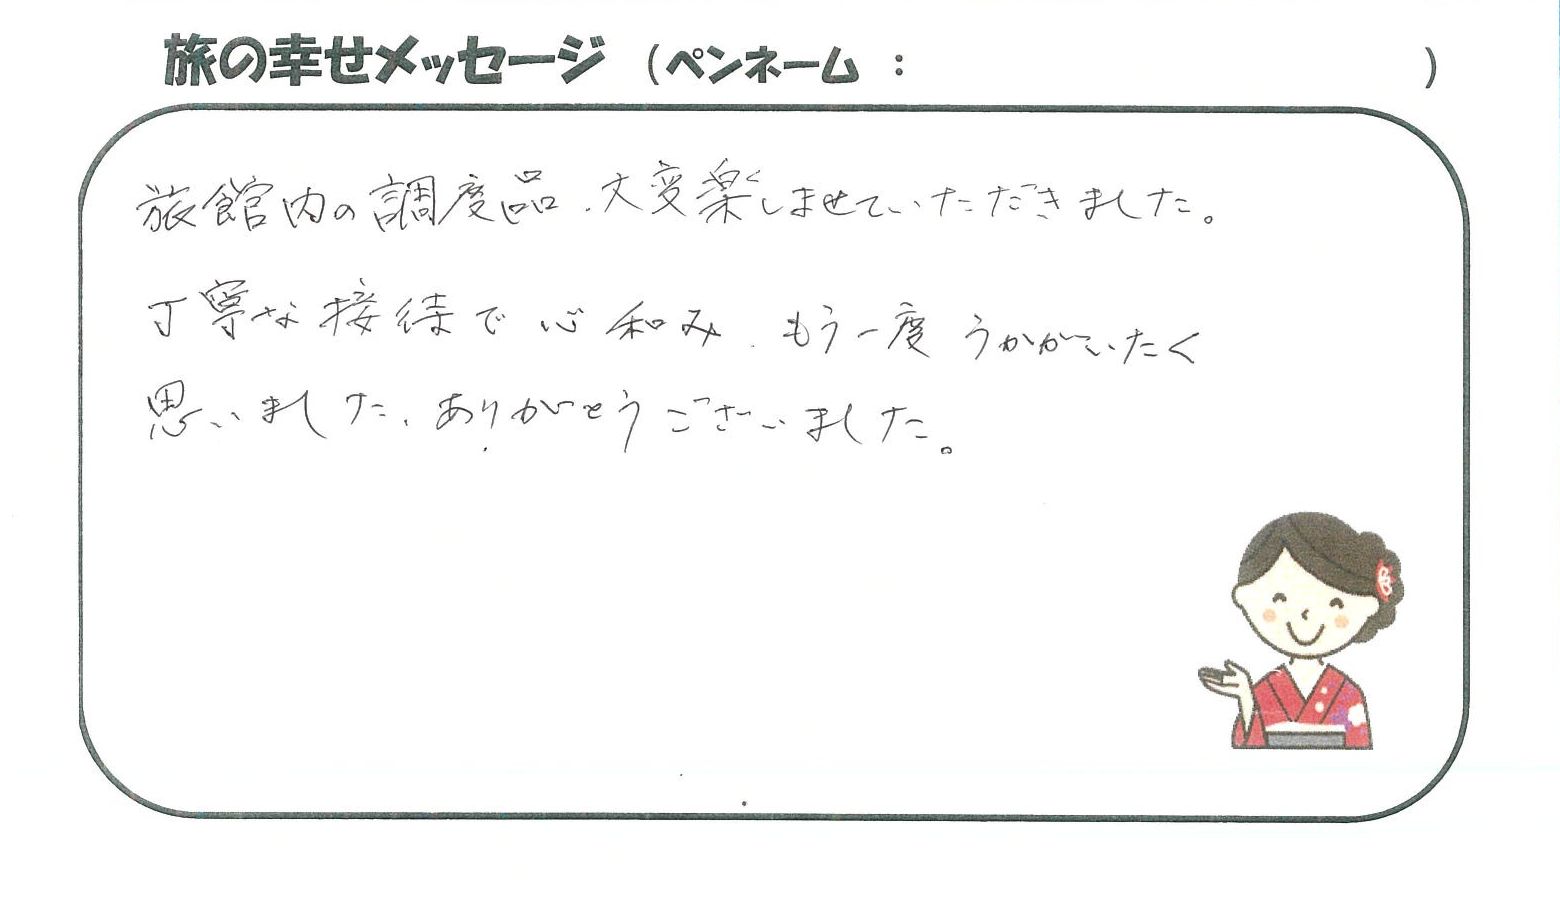 旅の幸せメッセージ （ペンネーム ： ）
旅館内の調度品、大変楽しませていただきました。
丁寧な接待で心和み、もう一度うかがいたく
思いました、ありがとうございました。